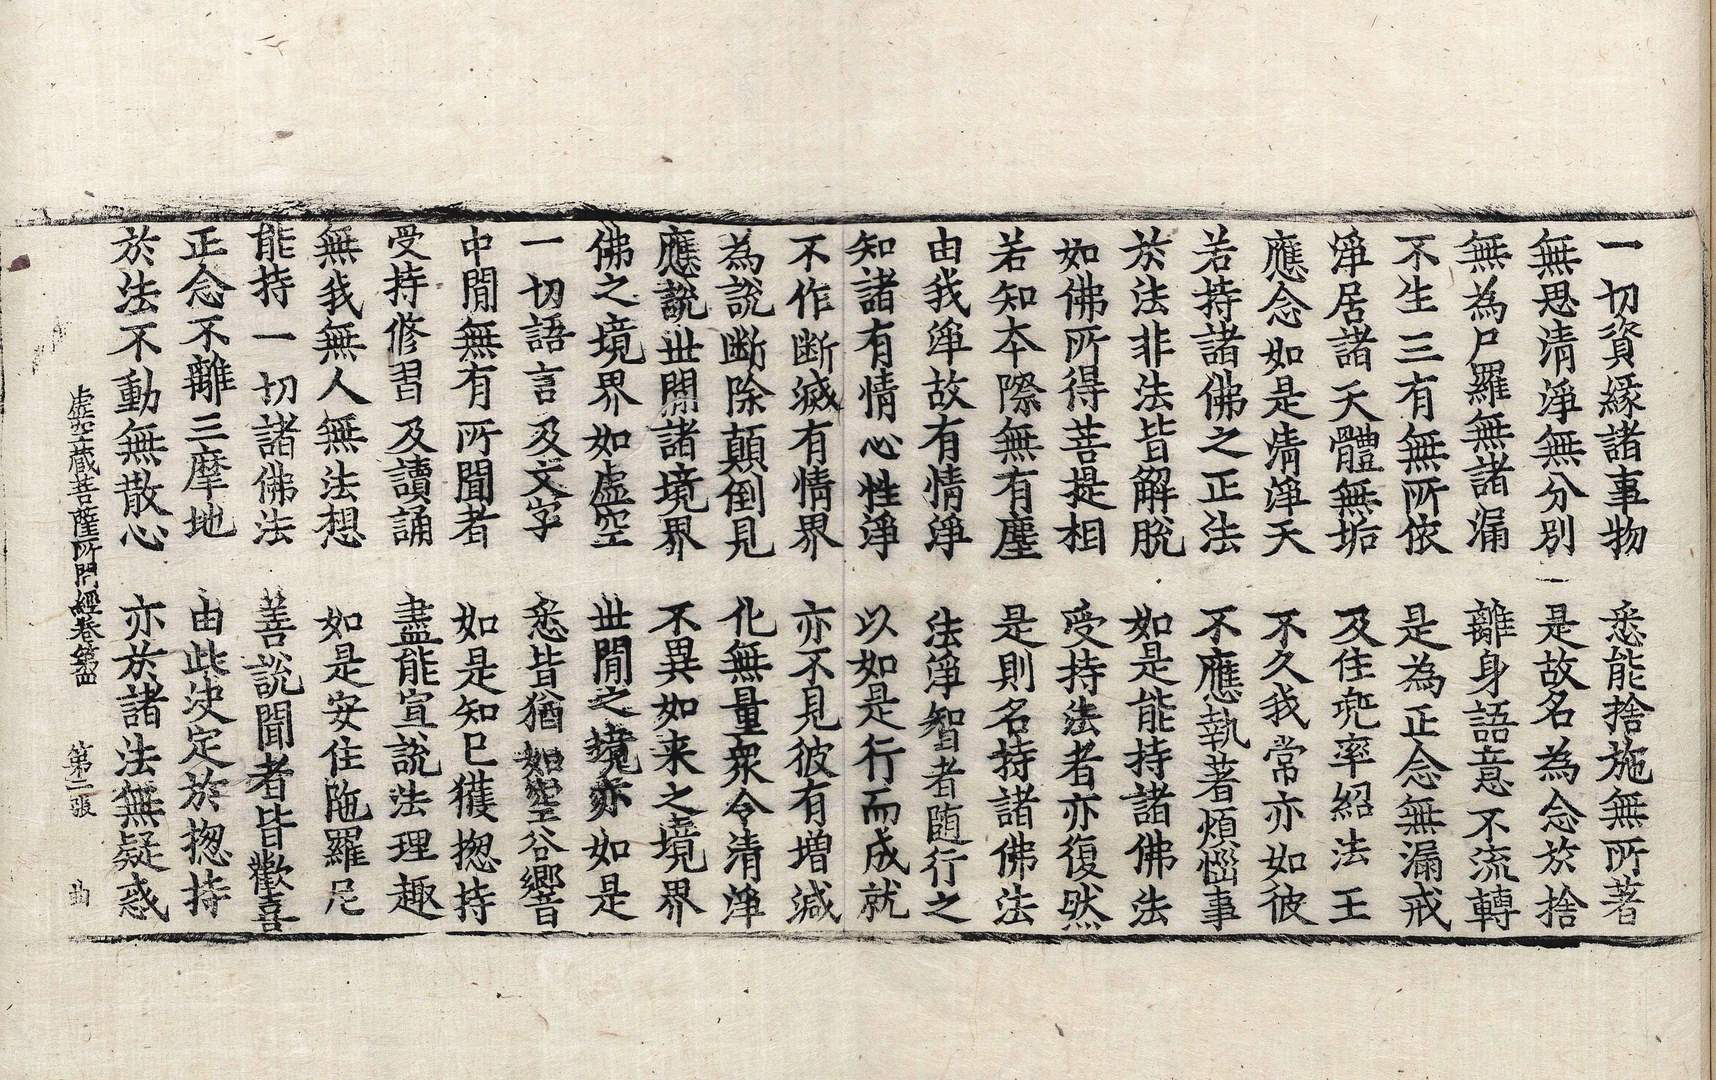 一切資緣諸事物　悉能捨施無所著
無思清淨無分別　是故名為念於捨
無為尸羅無諸漏　離身語意不流轉
不生三有無所依　是為正念無漏戒
淨居諸天體無垢　及住兜率紹法王
應念如是清淨天　不久我常亦如彼
若持諸佛之正法　不應執著煩惱事
於法非法皆解脫　如是能持諸佛法
如佛所得菩提相　受持法者亦復然
若知本際無有塵　是則名持諸佛法
由我淨故有情淨　法淨智者随行之
知諸有情心性淨　以如是行而成就
不作断滅有情界　亦不見彼有增減
為說断除顛倒見　化無量衆令清淨
應說世間諸境界　不異如来之境界
佛之境界如虛空　世間之境亦如是
一切語言及文字　悉皆猶如空谷響
中間無有所聞者　如是知已獲揔持
受持修習及讀誦　盡能宣說法理趣
無我無人無法想　如是安住陁羅尼
能持一切諸佛法　善說聞者皆歡喜
正念不離三摩地　由此决定於揔持
於法不動無散心　亦於諸法無疑惑
虛空藏菩薩所問經卷第四　第二張　曲